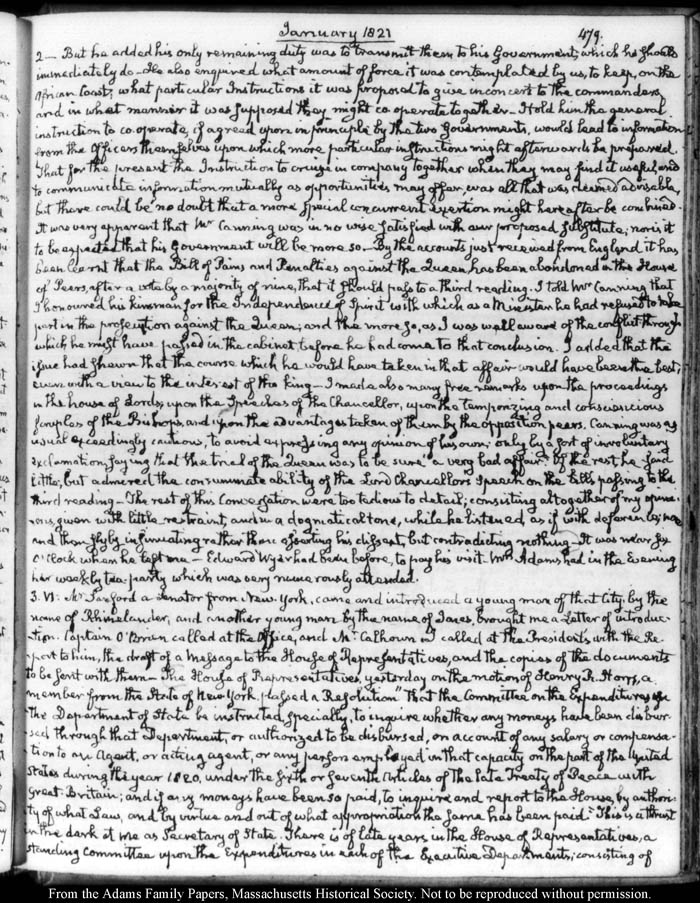 January 1821 479.
2— But he added his only remaining duty was to transmit them to his Government; which he should
immediately do— He also enquired what amount of force it was contemplated by us, to keep, on the
African Coast; what particular Instructions it was proposed to give in concert to the commanders,
and in what manner it was supposed they might co operate together— I told him the general
instruction to co operate, if agreed upon in principle by the two Governments, would lead to information
from the Officers themselves upon which more particular instructions might afterwards be prepared.
That for the present the Instruction to cruise in company together when they may find it useful, and
to communicate information mutually as opportunities may offer, was all that was deemed advisable,
but there could be no doubt that a more special concurrent exertion might hereafter be combined.
It was very apparent that Mr Canning was in no wise satisfied with our proposed substitute; nor is it
to be expected that his Government will be more so— By the accounts just received from England it has
been learnt that the Bill of Pains and Penalties against the Queen has been abandoned in the House
of Peers, after a vote by a majority of nine, that it should pass to a third reading. I told Mr Canning that
I honoured his kinsman for the Independence of Spirit with which as a Minister he had refused to take
part in the prosecution against the Queen; and the more so, as I was well aware of the conflict through
which he must have passed in the cabinet before he had come to that conclusion. I added that the
issue had shewn that the course which he would have taken in that affair would have been the best;
even with a view to the interest of the king— I made also many free remarks upon the proceedings
in the house of Lords; upon the Speeches of the Chancellor, upon the temporizing and conscientious
scruples of the Bishops, and upon the advantages taken of them by the opposition peers. Canning was as
usual exceedingly cautious, to avoid expressing any opinion of his own; only by a sort of involuntary
exclamation, saying that the trial of the Queen was to be sure "a very bad affair." Of the rest he said
little, but admired the consummate ability of the Lord Chancellor's speech on the Bill's passing to the
third reading— The rest of this Conversation were too tedious to detail; consisting altogether of my opin-
ions, given with little restraint, and in a dogmatical tone, while he listened, as if with deference; now
and then slyly insinuating rather than asserting his dissent, but contradicting nothing— It was near six
O'Clock when he left me— Edward Wyer had been before, to pay his visit. Mrs Adams had in the Evening
her weekly tea-party which was very numerously attended.
3. IV: Mr Sanford a Senator from New-York, came and introduced a young man of that City by the
name of Rhinelander, and another young man by the name of brought me a Letter of introduc-
tion. Captain O'Brien called at the Office, and Mr Calhoun. I called at the President's, with the Re-
port to him, the draft of a Message to the House of Representatives, and the copies of the documents
to be sent with them— The House of Representatives, yesterday on the motion of Henry R. Storrs, a
member from the State of New York passed a Resolution "That the Committee on the Expenditures of
the Department of State be instructed, specially, to inquire whether any moneys have been disbur-
sed through that Department, or authorized to be disbursed, on account of any salary or compensa-
tion to an Agent, or acting agent, or any person employed in that capacity on the part of the United
States during the year 1820, under the sixth or seventh Articles of the late Treaty of Peace with
Great-Britain; and if any moneys have been so paid, to inquire and report to the House, by authori-
ty of what Law, and by virtue and out of what appropriation the same has been paid." This is a thrust
in the dark at me as Secretary of State. There is of late years in the House of Representatives, a
standing Committee upon the Expenditures in each of the Executive Departments; consisting of
From the Adams Family Papers, Massachusetts Historical Society. Not to be reproduced without permission.